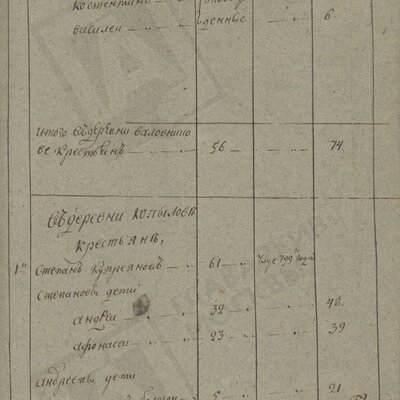 костентинъ
василеи денные 6
итого въдеревни валовнино
ве крестьянъ 56 74
въдеревни копылове
крестьянъ,
1й степанъ купреяновъ 61 умре 799 года
степановы дети
андреи 32 48
афонасеи 23 39
андреевы дети
5 21